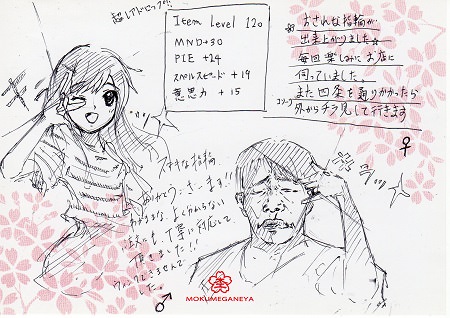 超レアドロップ!!
Item Level 120
MND+30
PIE +24
スペルスピード +19
意思力 +15
おさんな指輪が
出来上がりました☆
毎回楽しみにお店に
伺っていました。
また四条を通りかかったら
コソーリ
外からチラ見して行きます
♀
ステキな指輪
ありがとうございます!!
わがままな、よく分からない
注文にも、丁寧に対応して
頂きました!!
ウィンクできませんで
した。
♂
MOKUMEGANEYA